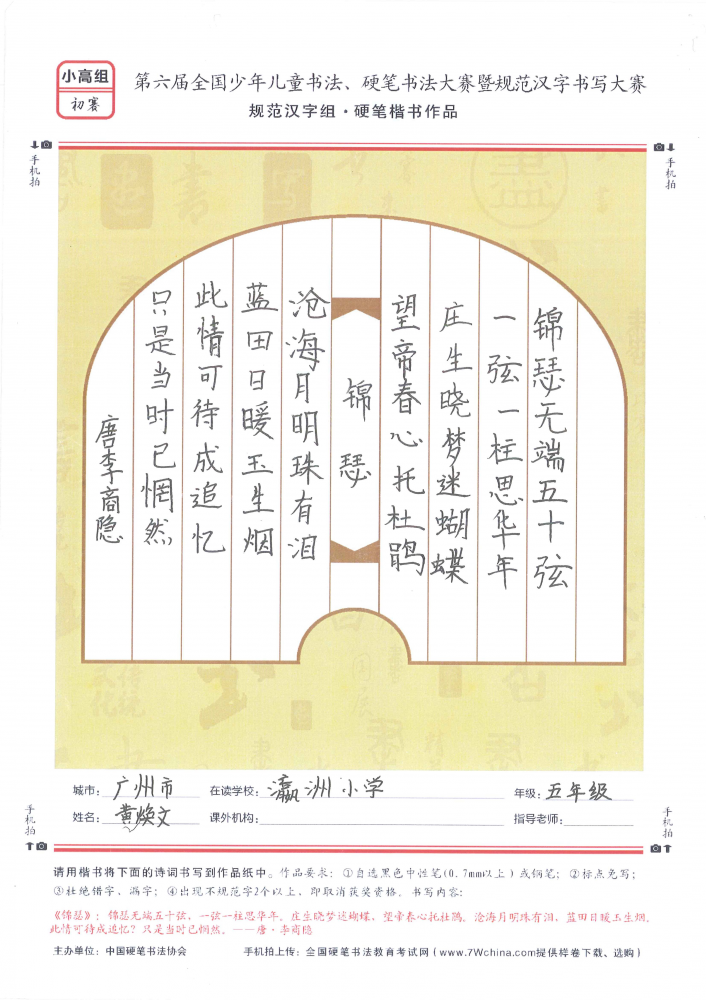 小高组
初赛
第六届全国少年儿童书法、硬笔书法大赛暨规范汉字书写大赛
规范汉字组·硬笔楷书作品
手机拍
手机拍
锦瑟无端五十弦
一弦一柱思华年
庄生晓梦迷蝴蝶
望帝春心托杜鹃
锦瑟
沧海月明珠有泪
蓝田日暖玉生烟
此情可待成追忆
只是当时已惘然
唐李商隐
城市：广州市 在读学校：瀛洲小学 年级：五年级
姓名：黄焕文 课外机构： 指导老师：
手机拍
手机拍
请用楷书将下面的诗词书写到作品纸中。作品要求：①自选黑色中性笔(0.7mm以上）或钢笔；②标点免写；
③杜绝错字、漏字；④出现不规范字2个以上，即取消获奖资格。书写内容：
《锦瑟》：锦瑟无端五十弦，一弦一柱思华年。庄生晓梦迷蝴蝶，望帝春心托杜鹃。沧海月明珠有泪，蓝田日暖玉生烟。
此情可待成追忆？只是当时已惘然。——唐·李商隐
主办单位：中国硬笔书法协会 手机拍上传：全国硬笔书法教育考试网（www.7Wchina.com提供样卷下载、选购）